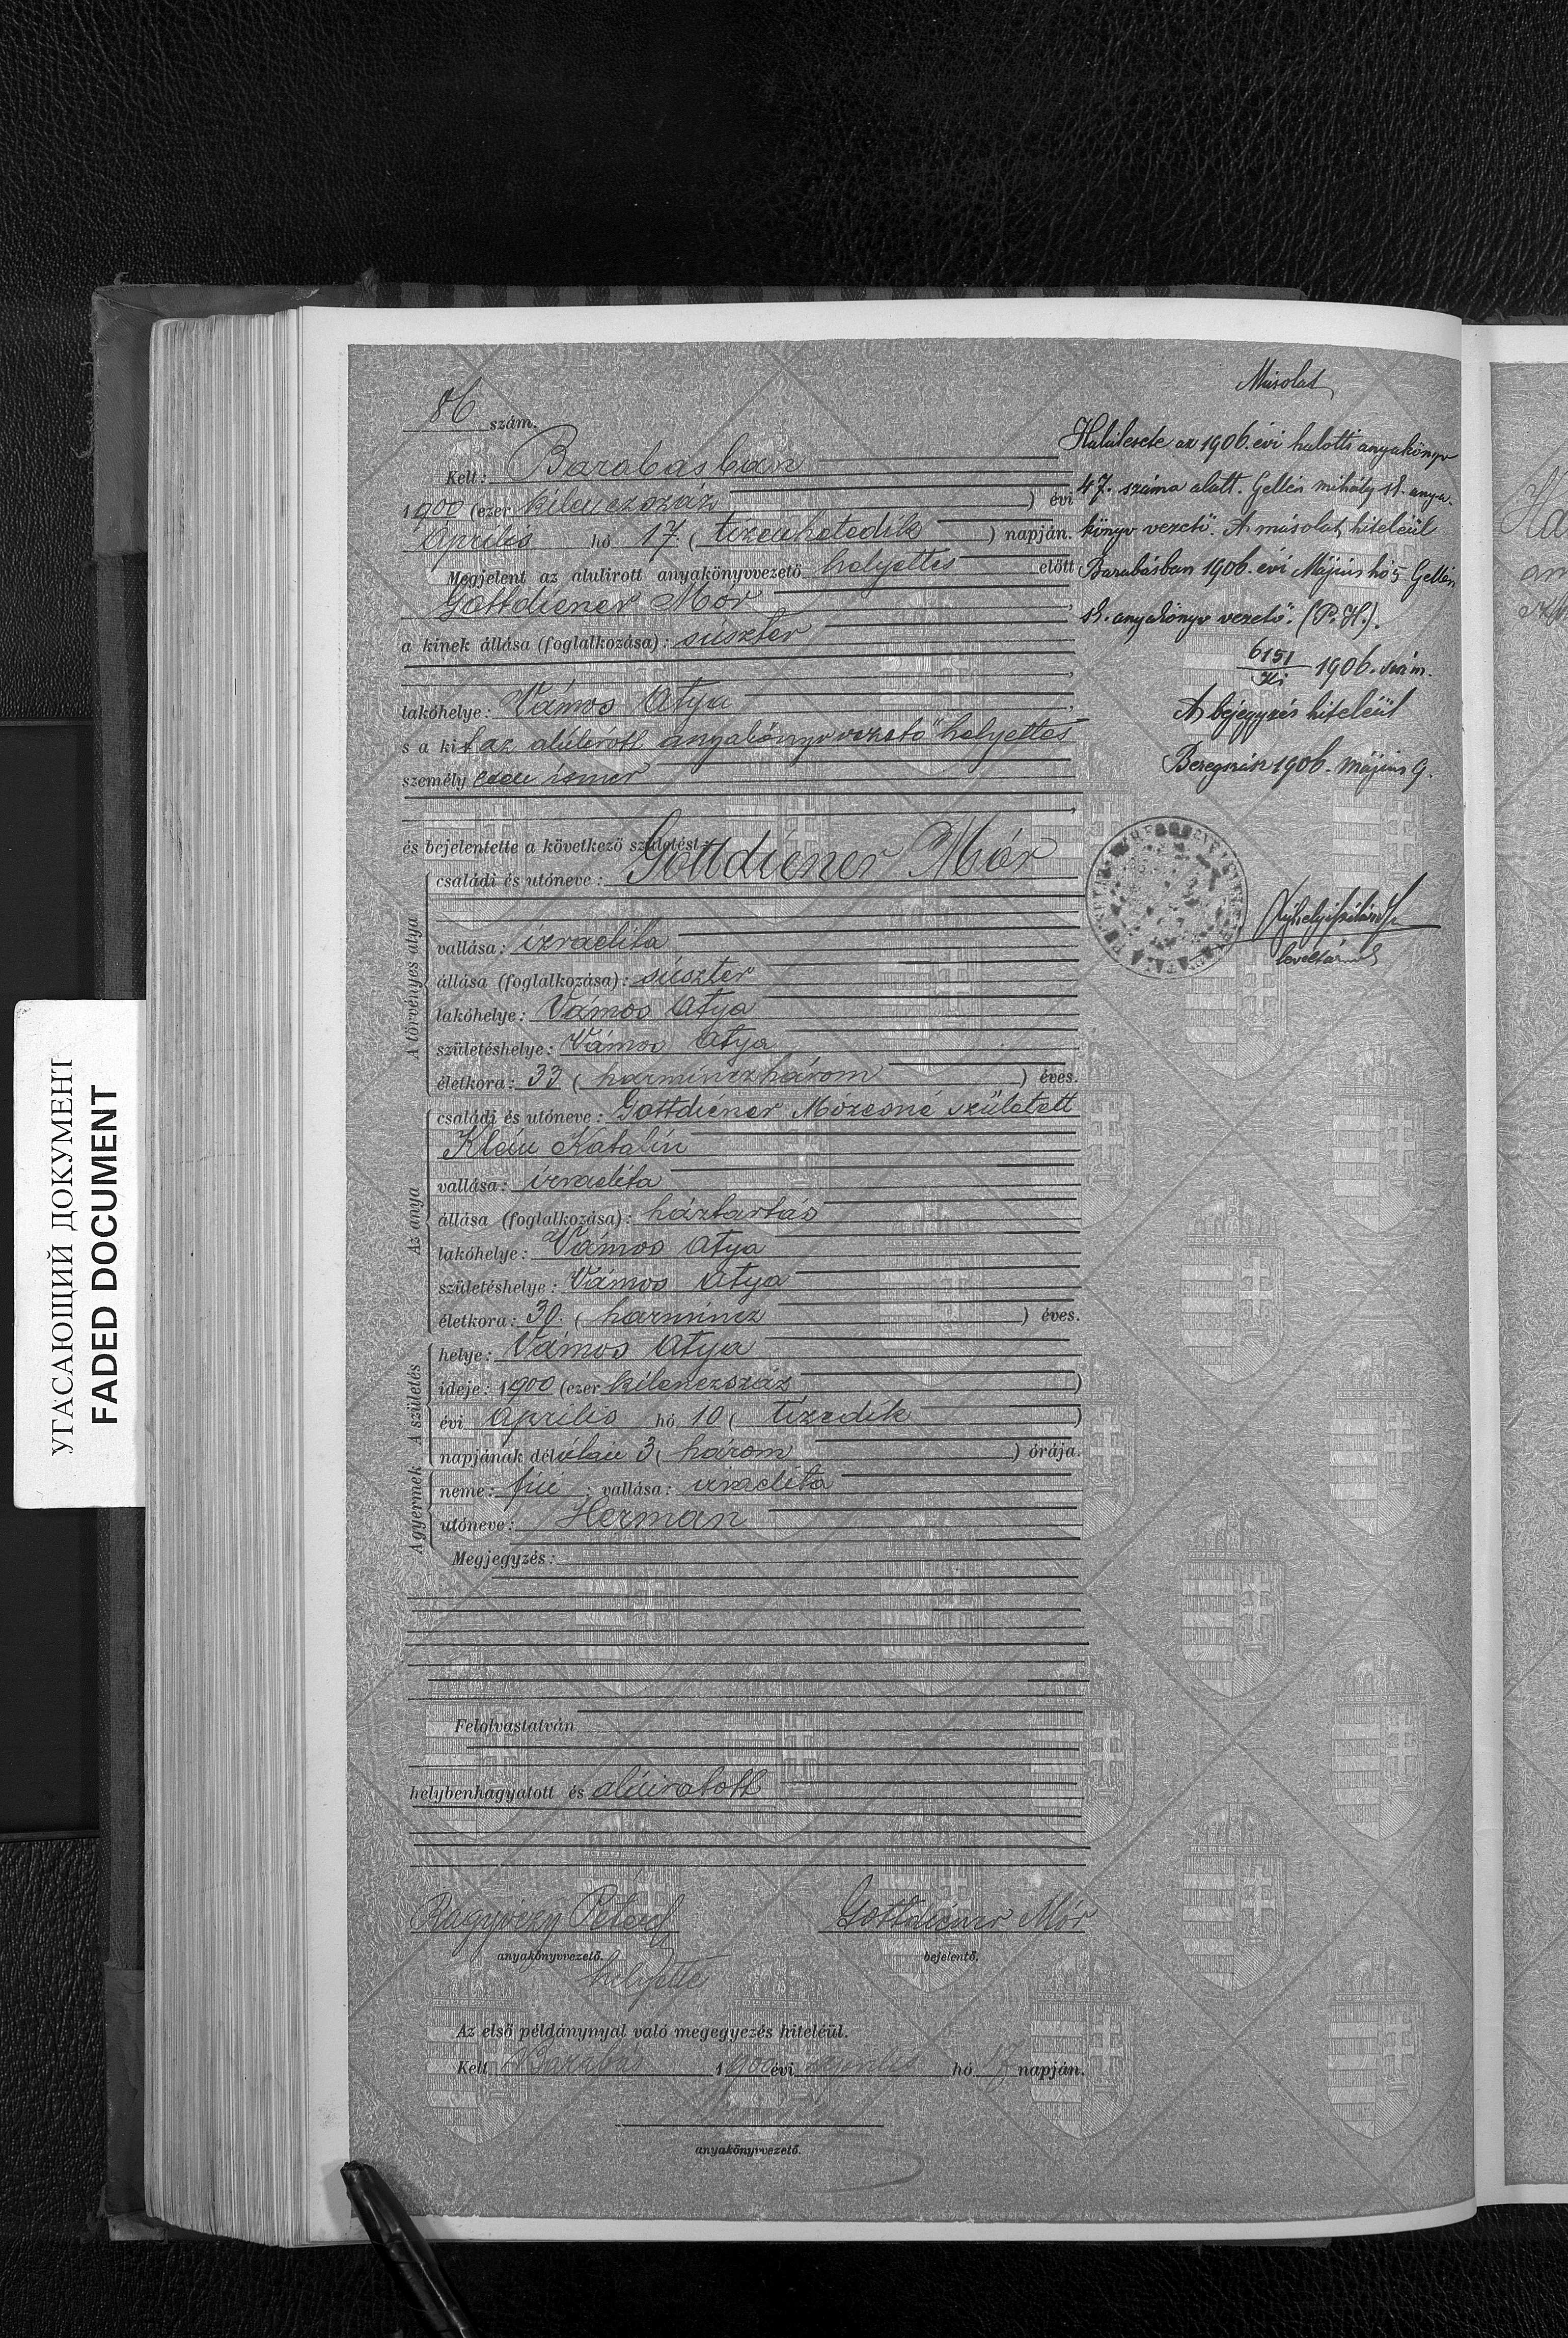 УГАСАЮЩИЙ ДОКУМЕНТ
FADED DOCUMENT
86 szám.
Kelt: Barabásban
1900 (ezer kilenczszáz) évi
április hó 17. (tizenhetedik) napján.
Megjelent az alulirott anyakönyvvezető helyettes előtt
Gottdiener Mór,
a kinek állása (foglalkozása): suszter
lakóhelye: Vámos Atya,
s a kit az alulirott anyakönyvvezető helyettes
személyesen ismer
és bejelentette a következő születést:
A törvényes atya
családi és utóneve: Gottdiener Mór
vallása: izraelita
állása (foglalkozása): suszter
lakóhelye: Vámos Atya
születéshelye: Vámos Atya
életkora: 33 (harminczhárom) éves.
Az anya
családi és utóneve: Gottdiener Mórcsné született
Klein Katalin
vallása: izraelita
állása (foglalkozása): háztartás
lakóhelye: Vámos Atya
születéshelye: Vámos Atya
életkora: 30. (harmincz) éves.
A születés
helye: Vámos Atya
ideje: 1900 (ezer kilenczszáz)
évi április hó 10 (tizedik)
napjának délután 3 (három) órája.
A gyermek
neme: fiú; vallása: izraelita
utóneve: Herman
Megjegyzés:
Felolvastatván
helybenhagyatott és aláiratott
Péter Gottdiener Mór
anyakönyvvezető. bejelentő.
helyettes
Az első példánynyal való megegyezés hiteléül.
Kelt Barabás 1900 évi április hó 17 napján.
anyakönyvvezető.
Másolat
Halálesete az 1906. évi halotti anyakönyv
47. száma alatt. Gellén Mihály st. anya-
könyv vezető. A másolat hiteléül
Barabásban 1906. évi Május hó 5 Gellén
st. anyakönyv vezető. (P. H.).
6151
Ki 1906. szám.
A bejegyzés hiteléül
Beregszász 1906. május 9.
levéltárnok